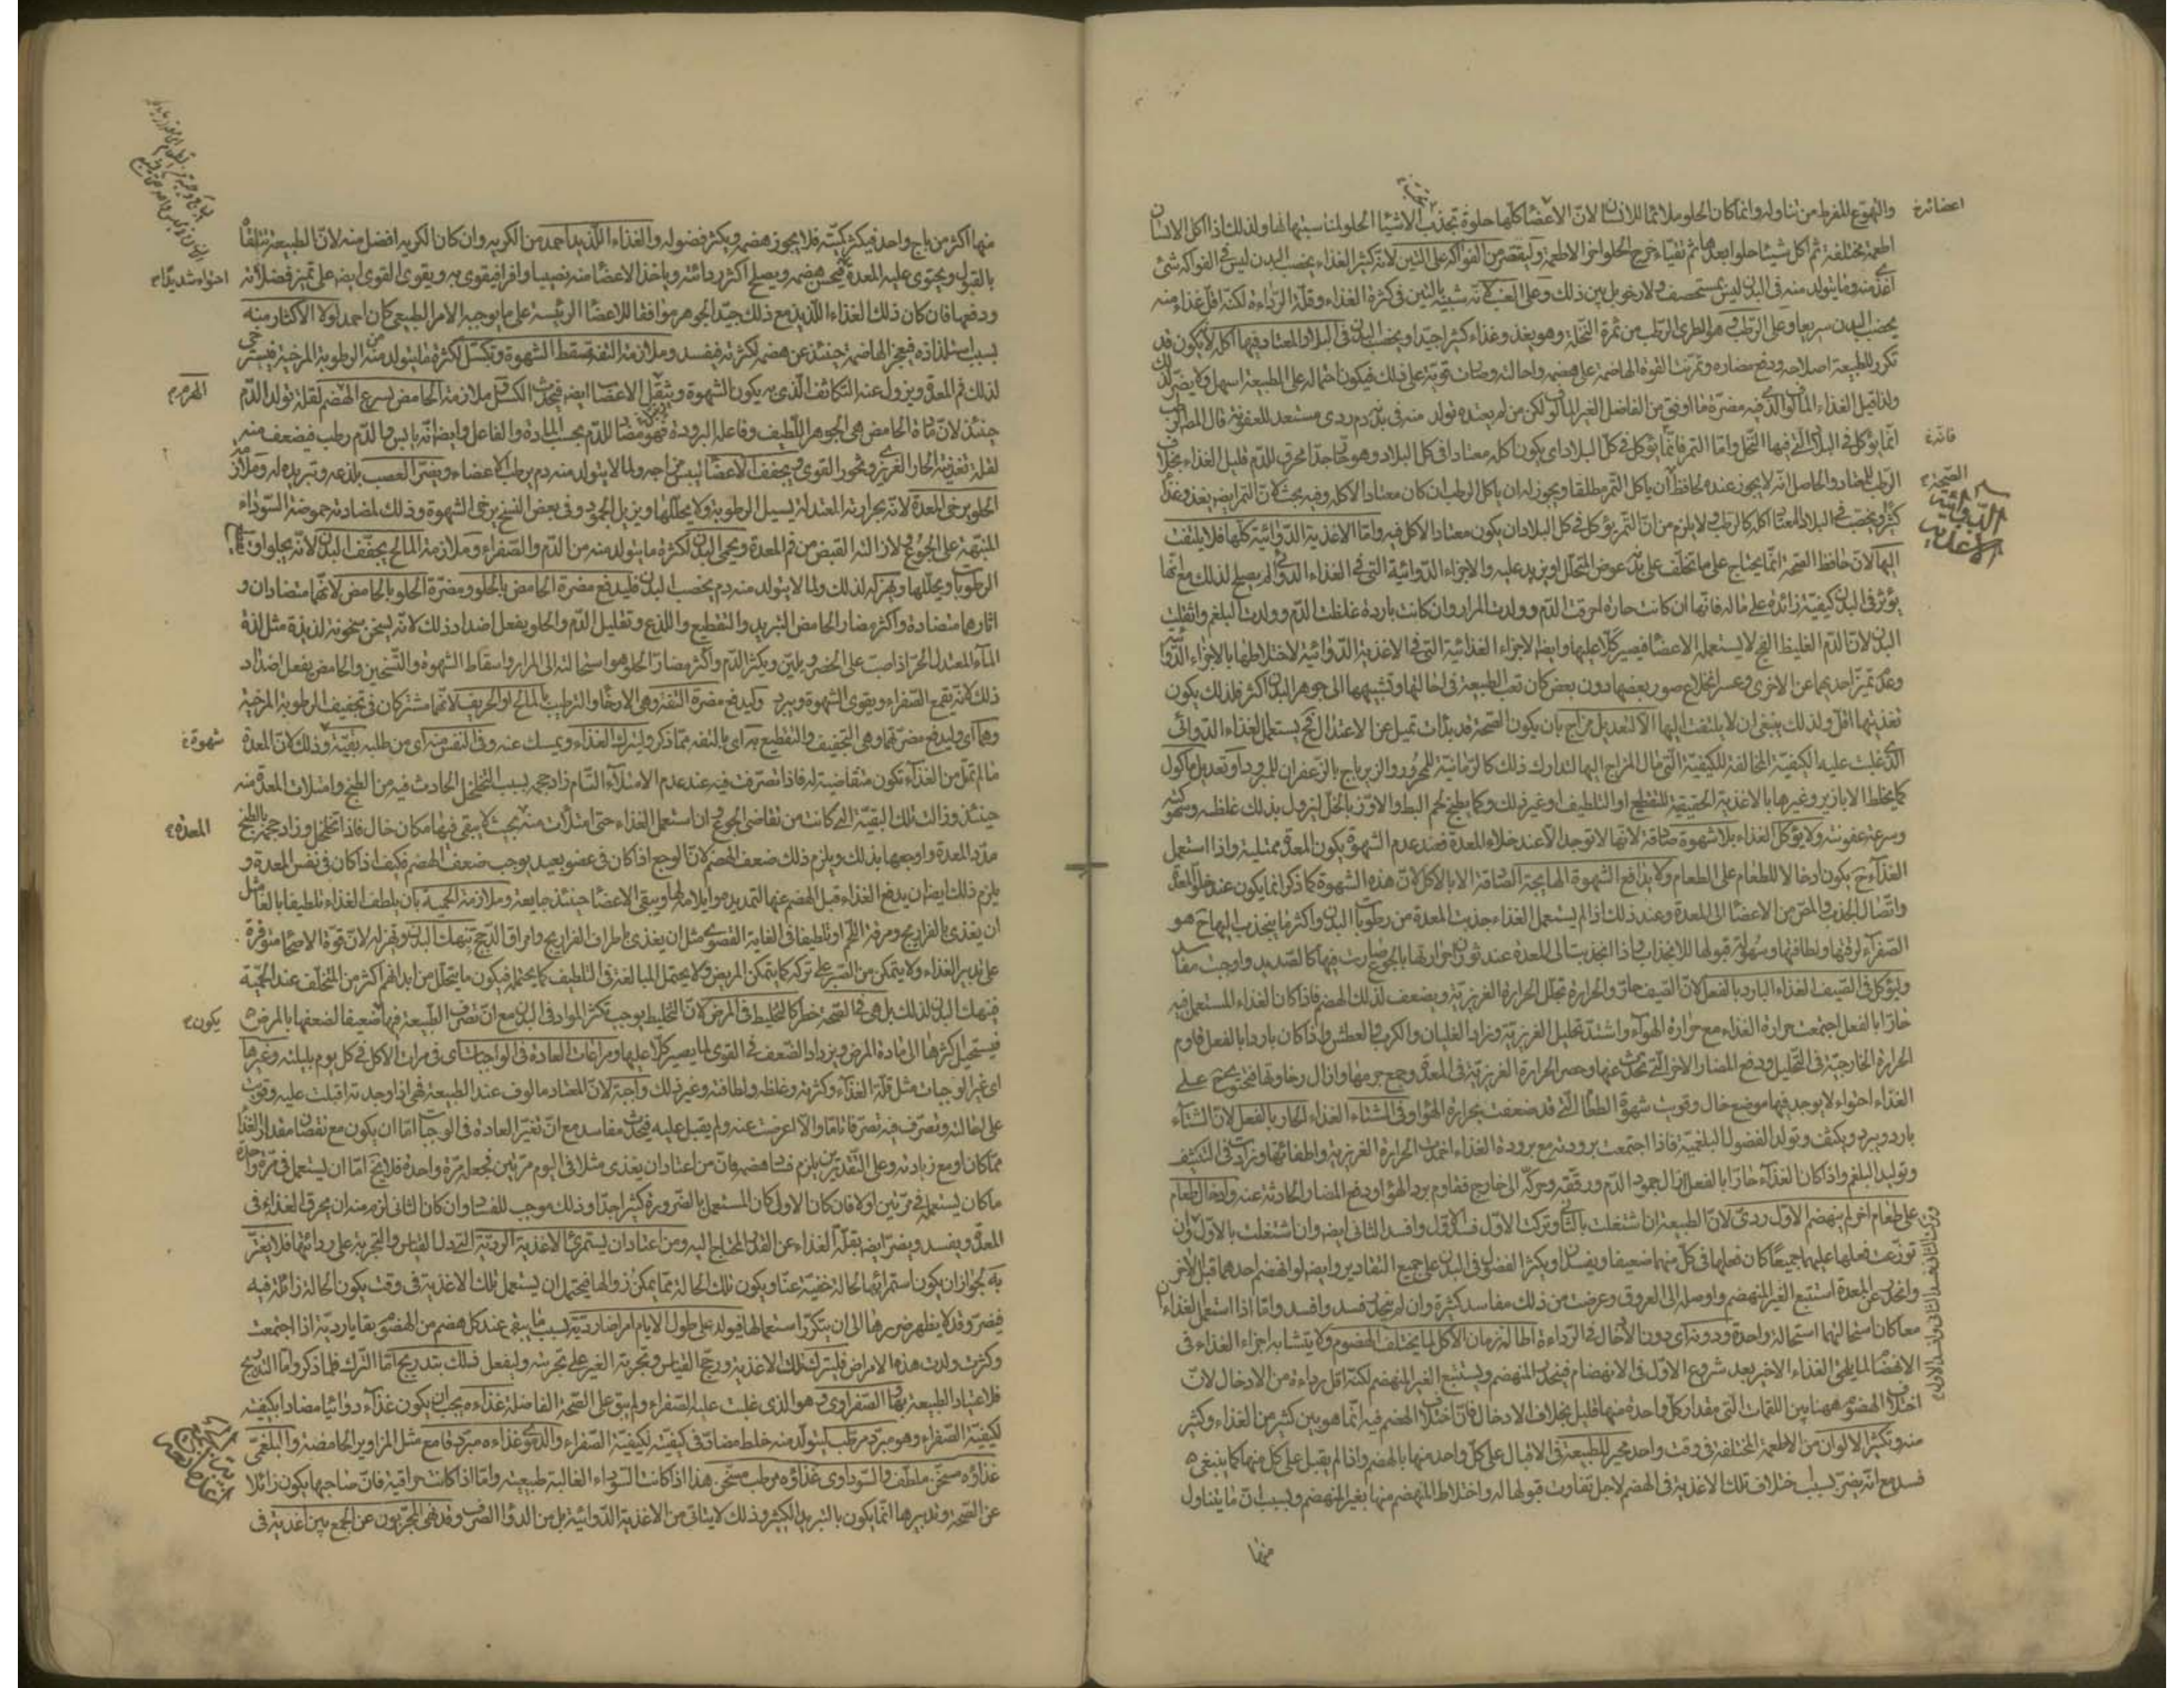 والتهوع المفرط من تناوله وانما كان الحلو ملائما للانسان لان الاعضا كلها حلوة تجذب الاشيا الحلو لمناسبتها لها ولذلك اذا اكل الانسان
اطعمة مختلفة ثم اكل شيئا حلوا بعدها ثم تقياء خرج الحلو اخر الاطعمة وليقتصر من الفواكه على التين لانه كثير الغذاء يخصب البدن ليس في الفواكه شئ
اغذى منه وما يتولد منه في البدن ليس بمستحصف ولا رخو بل بين ذلك وعلى العنب لانه شبيه بالتين في كثرة الغذاء وقلة الرداءة لكنه اقل غذاء منه
يخصب البدن سريعا وعلى الرطب هو الطرى الرطب من ثمرة النخلة وهو يغذو غذاء كثيرا جيدا ويخصب البدن في البلاد المعتاد فيها اكله لا يكون قد
تكرر للطبيعة اصلاحه ودفع مضاره وتمرنت القوة الهاضمة على هضمه واحالته وصارت قوية على ذلك فيكون احتماله على الطبيعة اسهل
ولذا قيل الغذاء المألوف الذى فيه مضرة ما اوفق من الفاضل الغير المألوف لكن من لم يعتده تولد منه في بدنه دم ردى مستعد للعفونة
انما يؤكل في البلاد التى فيها النخل واما التمر فانما يؤكل في كل البلاد اى يكون اكله معتادا في كل البلاد وهو حار جدا محرق للدم قليل الغذاء بخلاف
الرطب المعتاد والحاصل انه لا يجوز عنده لحافظ ان ياكل التمر مطلقا ويجوز له ان ياكل الرطب ان كان معتادا لاكله وفيه بحث لان التمر ايضا يغذو غذاء
كثيرا ويخصب في البلاد المعتاد اكله كالرطب ولا يلزم من ان التمر يؤكل في كل البلاد ان يكون معتاد الاكل فيه واما الاغذية الدوائية كلها فلا يلتفت
اليها لان حافظ الصحة انما يحتاج على ما تخلف على بدنه عوض المتحلل او يزيد عليه والاجزاء الدوائية التى في الغذاء الدوائى لم يصلح لذلك مع انها
يؤثر في البدن كيفية زائدة على ماله فانها ان كانت حارة احرقت الدم وولدت المرار وان كانت باردة غلظت الدم وولدت البلغم واثقلت
البدن لان الدم الغليظ الفج لا يستعمله الاعضا فيصير كلا عليها وايضا الاجزاء الغذائية التى في الاغذية الدوائية لاختلاطها بالاجزاء الدوائية
وعدم تميز احديهما عن الاخرى وعسر انخلاع صور بعضها دون بعض كان تعب الطبيعة في احالتها وتشبيهها الى جوهر البدن اكثر فلذلك يكون
تغذيتها اقل ولذلك ينبغى ان لا يلتفت اليها الا لتعديل مزاج بان يكون الصحة قد بدأت تميل عن الاعتدال فح يستعمل الغذاء الدوائى
الذى غلبت عليه الكيفية المخالفة للكيفية التى مال المزاج اليها لتدارك ذلك كالرمانية للمحرور والزيرباج بالزعفران للمبرود او تعديل ماكول
كما يخلط الابازير وغيرها بالاغذية الحقيقية للتقطيع او التلطيف او غير ذلك وكما يطبخ لحم البط والاوز بالخل ليزول بذلك غلظه وسهوكته
وسرعة عفونته ولا يؤكل الغذاء بلا شهوة صادقة لانها لا توجد الا عند خلاء المعدة فعند عدم الشهوة يكون المعدة ممتلية واذا استعمل
الغذاء ح يكون ادخالا للطعام على الطعام ولا يدافع الشهوة الهايجة الصادقة الا بالاكل لان هذه الشهوة كما ذكر انما يكون عند خلو المعدة
واتصال الجذب والمص من الاعضا الى المعدة وعند ذلك اذا لم يستعمل الغذاء جذبت المعدة من رطوبات البدن واكثر ما ينجذب اليها ح هو
الصفراء لرقتها ولطافتها وسهولة قبولها للانجذاب واذا انجذبت الى المعدة عند ثوران حرارتها بالجوع صارت فيها كالصديد واوجبت مفاسد
وليؤكل في الصيف الغذاء البارد بالفعل لان الصيف حار والحرارة تحلل الحرارة الغريزية ويضعف لذلك الهضم فاذا كان الغذاء المستعمل فيه
حارا بالفعل اجتمعت حرارة الغذاء مع حرارة الهواء واشتد تحليل الغريزية وزاد الغليان والكرب والعطش واذا كان باردا بالفعل قاوم
الحرارة الخارجية في التحليل ودفع المضار الاخرى التى تحدث عنها وحصر الحرارة الغريزية في المعدة وجمع جرمها وازال رخاوتها فتحتوى ح على
الغذاء احتواء لا يوجد فيها موضع خال وقويت شهوة الطعام التى قد ضعفت بحرارة الهواء وفى الشتاء الغذاء الحار بالفعل لان الشتاء
بارد ويبرد ويكثف وتولد الفضول البلغمية فاذا اجتمعت برودته مع برودة الغذاء اخمدت الحرارة الغريزية واطفائها وزادت في التكثيف
وتوليد البلغم واذا كان الغذاء حارا بالفعل ازال جمود الدم ورققه وحركه الى خارج فقاوم برد الهواء ودفع المضار الحادثة عنه وادخال طعام
على طعام اخر لم ينهضم الاول ردئ لان الطبيعة ان اشتغلت بالثانى وتركت الاول فسد الاول وافسد الثانى ايضا وان اشتغلت بالاول وان
توزعت فعلها عليهما جميعا كان فعلها في كل منهما ضعيفا ويفسدان ويكثر الفضول في البدن على جميع التقادير وايضا لو انهضم احدهما قبل الاخر
وانحدر عن المعدة استتبع الغير المنهضم واوصله الى العروق وعرضت من ذلك مفاسد كثيرة وان لم ينحدر فسد وافسد واما اذا استعمل الغذاءان
معا كان استحالتهما استحالة واحدة ودونه اى دون الادخال في الرداءة اطالة زمان الاكل لما يختلف الهضوم ولا يتشابه اجزاء الغذاء في
الانهضام لما يلحق الغذاء الاخير بعد شروع الاول في الانهضام فينحدر المنهضم ويستتبع الغير المنهضم لكنه اقل رداءة من الادخال لان
اختلاف الهضوم ههنا بين اللقمات التى مقدار كل واحدة منها قليل بخلاف الادخال فان اختلاف الهضم فيه انما هو بين كثير من الغذاء وكثير
منه وتكثير الالوان من الاطعمة المختلفة في وقت واحد محير للطبيعة في الاقبال على كل واحد منها بالهضم واذا لم يقبل على كل منها كما ينبغى
فسد مع انه يضر بسبب اختلاف تلك الاغذية في الهضم لاجل تفاوت قبولها له واختلاط المنهضم منها بغير المنهضم وبسبب ان ما يتناول
منها
اعضائه
فانه
الصحة
الدوائية
الاغذية
منها اكثر من باج واحد فيكثر كميته فلا يجوز هضمه ويكثر فضوله والغذاء اللذيذ احمد من الكريه وان كان الكريه افضل منه لان الطبيعة تتلقاه
بالقبول ويحتوى عليه المعدة فيحسن هضمه ويصلح اكثر ردائته وياخذ الاعضا منه نصيبا وافرا فيقوى به ويقوى القوى ايضا على تميز فضلاته
ودفعها فان كان ذلك الغذاء اللذيذ مع ذلك جيد الجوهر موافقا للاعضا الرئيسة على ما يوجبه الامر الطبيعى كان احمد لولا الاكثار منه
بسبب استلذاذه فيعجز الهاضمة حينئذ عن هضمه لكثرته فيفسد وملازمة التفه تسقط الشهوة وتكسل لكثرة ما يتولد منه من الرطوبة المرخية فيسترخى
لذلك فم المعدة ويزول عنه التكاثف الذى به يكون الشهوة ويثقل الاعصاب ايضا فيحدث الكسل وملازمة الحامض يسرع الهرم لقلة تولد الدم
حينئذ لان مادة الحامض هى الجوهر اللطيف وفاعله البرودة فهو مضاد للدم بحسب المادة والفاعل وايضا انه يابس والدم رطب فيضعف منه
لقلة تغذية الحار الغريزى وتخور القوى ويجفف الاعضا ليبس مزاجه ولما لا يتولد منه دم يرطب الاعضاء ويضر العصب بلذعه وتبريده له وملازمة
الحلو يرخى المعدة لانه بحرارته المعتدلة يسيل الرطوبة ولا يحللها ويزيل الجمود وفى بعض النسخ يرخى الشهوة وذلك لمضادته حموضة السوداء
المنبهة على الجوع ولازالته القبض من فم المعدة ويحمى البدن لكثرة ما يتولد منه من الدم والصفراء وملازمة المالح يجفف البدن لانه يجلو
الرطوبات ويحللها ويهزله لذلك ولما لا يتولد منه دم يخصب البدن فليدفع مضرة الحامض بالحلو ومضرة الحلو بالحامض لانهما متضادان و
اثارهما متضادة واكثر مضار الحامض التبريد والتقطيع واللذع وتقليل الدم والحلو يفعل اضداد ذلك لانه يسخن سخونة لذيذة مثل لذة
الماء المعتدل الحر اذا صب على الخضر ويلين ويكثر الدم واكثر مضار الحلو هو استحالته الى المرار واسقاط الشهوة والتسخين والحامض يفعل اضداد
ذلك لانه يقمع الصفراء ويقوى الشهوة ويبرد وليدفع مضرة التفه وهى الارخاء والترطيب بالمالح او الحريف لانهما مشتركان في تجفيف الرطوبة المرخية
وهما اى وليدفع مضرتهما وهى التجفيف والتقطيع به اى بالتفه مما ذكر وليترك الغذاء ويمسك عنه وفى النفس منه اى من طلبه بقية وذلك لان المعدة
ما لم تمتل من الغذاء تكون متقاضية له فاذا تصرفت فيه عند عدم الامتلاء التام زاد حجمه بسبب التخلخل الحادث فيه من الطبخ وامتلات المعدة منه
حينئذ وزالت تلك البقية التى كانت من تقاضى الجوع وان استعمل الغذاء حتى امتلأت منه بحيث لا يبقى فيها مكان خال فاذا تخلخل وزاد حجمه بالطبخ
مدد المعدة واوجعها بذلك ويلزم ذلك ضعف الهضم لان الوجع اذا كان في عضو بعيد يوجب ضعف الهضم فكيف اذا كان في نفس المعدة و
يلزم ذلك ايضا ان يدفع الغذاء قبل الهضم عنها لتمديدها وايلامه لها ويبقى الاعضا حينئذ جايعة وملازمة الحمية بان يلطف الغذاء تلطيفا بالغا مثل
ان يغذى بالفراريج ومرقة اللحم او تلطيفا في الغاية القصوى مثل ان يغذى باطراف الفراريج وامراق الدجج تنهك البدن وتهزله لان قوة الاصحا متوفرة
على تدبير الغذاء ولا يتمكن من الصبر على تركه كما يتمكن المريض ولا يحتمل المبالغة في التلطيف كما يحتمله فيكون ما يتحلل من ابدانهم اكثر من المتخلف عند الحمية
فينهك البدن لذلك بل هى في الصحة خطر كالتخليط في المرض لان التخليط يوجب تكثر المواد في البدن مع ان تصرف الطبيعة فيها ضعيفا لضعفها بالمرض
فيستحيل اكثرها الى مادة المرض ويزداد الضعف في القوى لما يصير كلا عليها ومراعات العادة في الواجبات اى في مرات الاكل في كل يوم بليلته وغيرها
اى غير الوجبات مثل قلة الغذاء وكثرته وغلظه ولطافته وغير ذلك واجبة لان المعتاد مالوف عند الطبيعة فهى اذا وجدته اقبلت عليه وقويت
على احالته وتصرف فيه تصرفا تاما والا اعرضت عنه ولم يقبل عليه فيحدث مفاسد مع ان تغير العادة في الوجبات اما ان يكون مع نقصان مقدار الغذاء
مما كان او مع زيادته وعلى التقديرين يلزم فساد هضمه فان من اعتاد ان يغذى مثلا في اليوم مرتين فجعله مرة واحدة فلا يخ اما ان يستعمل في مرة واحدة
ما كان يستعمله في مرتين اولا فان كان الاول كان المستعمل بالضرورة كثيرا جدا وذلك موجب للفساد وان كان الثانى لزم منه ان يحرق الغذاء في
المعدة ويفسد ويضر ايضا بقلة الغذاء عن القدر المحتاج اليه ومن اعتاد ان يستمرئ الاغذية الردية التى دل القياس والتجربة على ردائتها فلا يغتر
به لجواز ان يكون استمرائها لحالة خفية عنا ويكون تلك الحالة مما يمكن زوالها فيحتمل ان يستعمل تلك الاغذية في وقت يكون الحالة زائلة فيه
فيضر وقد لا يظهر ضررها الى ان يتكرر استعمالها فيولد على طول الايام امراضا ردية بسبب ما يبقى عند كل هضم من الهضوم بقايا ردية اذا اجتمعت
وكثرت ولدت هذه الامراض فليترك تلك الاغذية ورجح القياس وتجربة الغير على تجربته وليفعل ذلك بتدريج اما الترك فلما ذكر واما التدريج
فلاعتياد الطبيعة بها الصفراوى هو الذى غلبت عليه الصفراء ولم يبق على الصحة الفاضلة غذاءه يجب ان يكون غذاء دوائيا مضادا بكيفيته
لكيفية الصفراء وهو مبرد مرطب ليتولد منه خلط مضاد في كيفيته لكيفية الصفراء والدموى غذاءه مبرد قامع مثل المزاوير الحامضة والبلغمى
غذاؤه مسخن ملطف والسوداوى غذاؤه مرطب مسخن هذا اذا كانت السوداء الغالبة طبيعية واما اذا كانت حراقية فان صاحبها يكون زائلا
عن الصحة وتدبيرها انما يكون بالتبريد الكثير وذلك لا يتاتى من الاغذية الدوائية بل من الدوا الصرف وقد نهى المجربون عن الجمع بين اغذية في
احتواء شديدا
الهرم
شهوة
المعدة
يكون